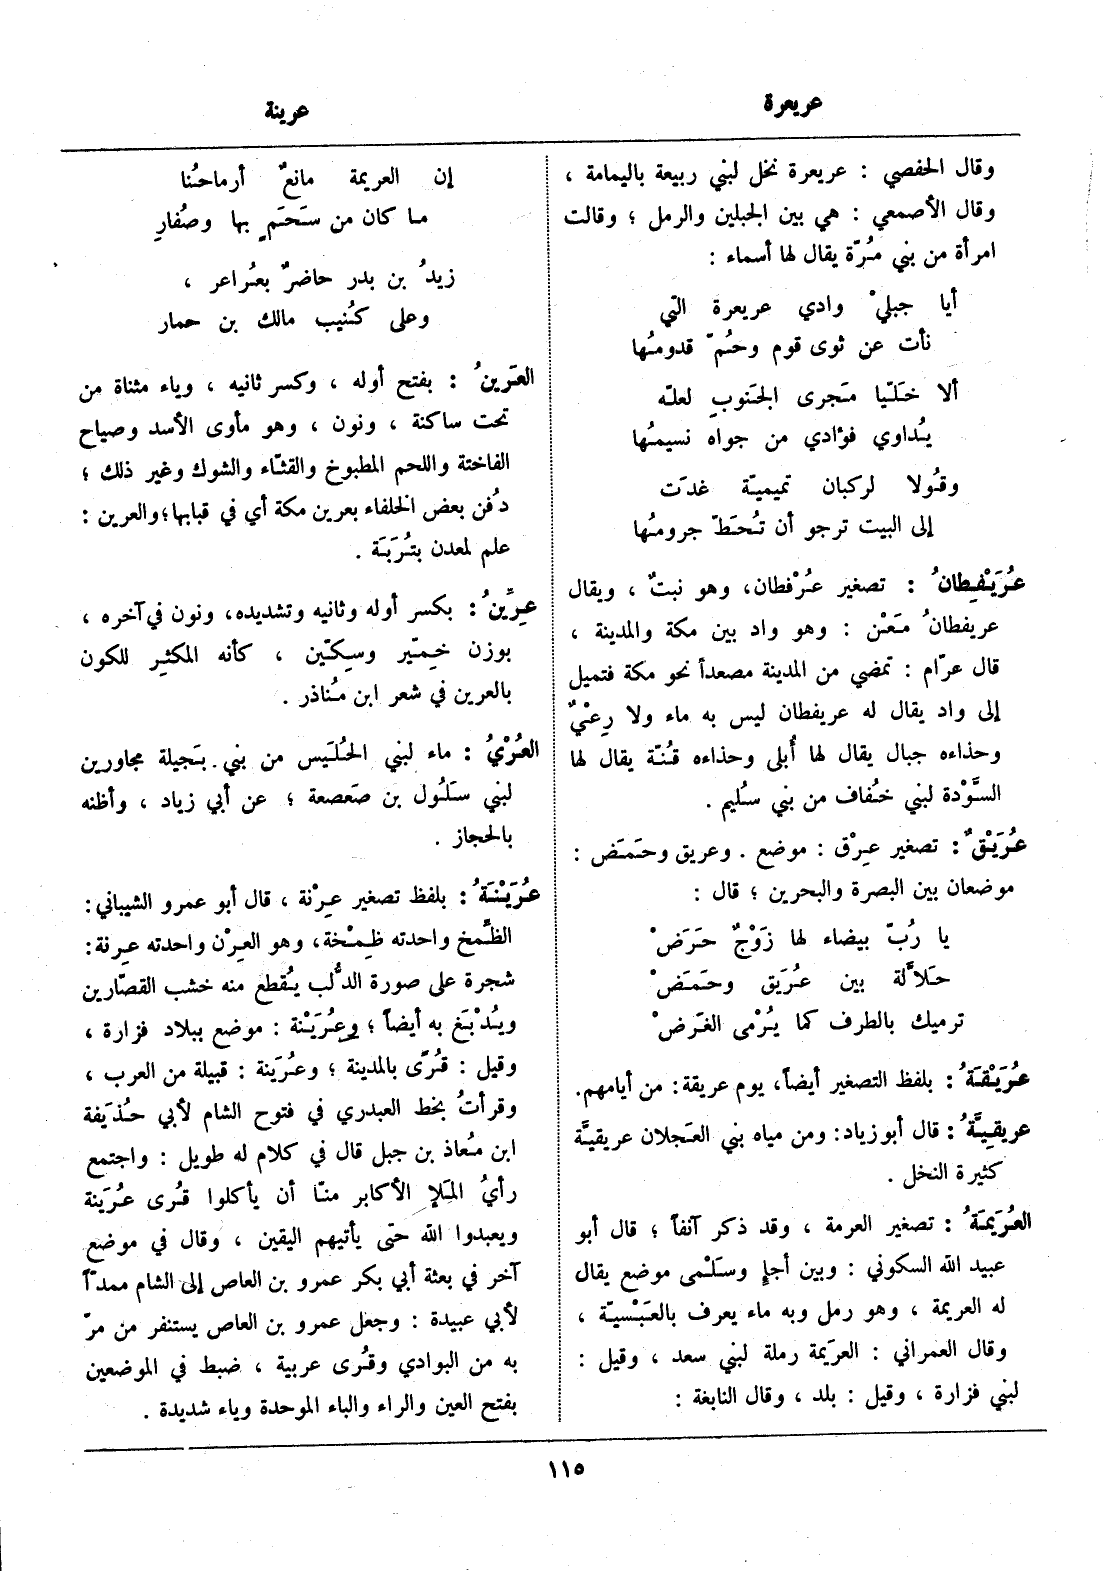 عريعرة
عرينة
وقال الحفصي : عريعرة نخل لبني ربيعة باليمامة ،
وقال الأصمعي : هي بين الجبلين والرمل ؛ وقالت
امرأة من بني مُرّة يقال لها أسماء :
أيا جبليْ وادي عريعرة التي
نأت عن ثوى قوم وحُمّ قدومُها
ألا خَلّيا مَجرى الجَنوبِ لعله
يُداوي فؤادي من جواه نسيمُها
وقُولا لركبان تميميّة غدَت
إلى البيت ترجو أن تُحَطّ جرومُها
عُرَيْفِطانُ : تصغير عُرْفطان، وهو نبتٌ ، ويقال
عريفطانُ مَعْن : وهو واد بين مكة والمدينة ،
قال عرّام : تمضي من المدينة مصعداً نحو مكة فتميل
إلى واد يقال له عريفطان ليس به ماء ولا رِعْيٌ
وحذاءه جبال يقال لها أُبلى وحذاءه قُنّة يقال لها
السَّوْدة لبني خُفاف من بني سُليم .
عُرَيْقٌ : تصغير عِرْق : موضع . وعريق وحَمَض :
موضعان بين البصرة والبحرين ؛ قال :
يا رُبّ بيضاء لها زَوْجٌ حَرَضْ
حَلاّلة بين عُرَيق وحَمَضْ
ترميك بالطرف كما يُرْمى الغَرَضْ
عُرَيْقَةُ : بلفظ التصغير أيضاً، يوم عريقة: من أيامهم.
عريقِيَّةُ : قال أبو زياد: ومن مياه بني العَجلان عريقيَّة
كثيرة النخل .
العُرَيمَةُ : تصغير العرمة ، وقد ذكر آنفاً ؛ قال أبو
عبيد الله السكوني : وبين أجإٍ وسَلْمى موضع يقال
له العريمة ، وهو رمل وبه ماء يعرف بالعَبْسيّة ،
وقال العمراني : العرَيمة رملة لبني سعد ، وقيل :
لبني فزارة ، وقيل : بلد ، وقال النابغة :
إن العريمة مانعٌ أرماحُنا
ما كان من سَحَمٍ بها وصُفارِ
زيدُ بن بدر حاضرٌ بعُراعر ،
وعلى كُنيب مالك بن حمار
العَرينُ : بفتح أوله ، وكسر ثانيه ، وياء مثناة من
تحت ساكنة ، ونون ، وهو مأوى الأسد وصياح
الفاختة واللحم المطبوخ والقثّاء والشوك وغير ذلك ؛
دُفن بعض الخلفاء بعرين مكة أي في قبابها؛ والعرين :
علم لمعدن بتُرَبَة .
عِرِّينُ : بكسر أوله وثانيه وتشديده، ونون في آخره ،
بوزن خِمّير وسِكّين ، كأنه المكثِر للكون
بالعرين في شعر ابن مُناذر .
العُرْيُ : ماء لبني الحُلَيس من بني بَجيلة مجاورين
لبني سَلُول بن صَعصعة ؛ عن أبي زياد ، وأظنه
بالحجاز .
عُرَيْنَةُ : بلفظ تصغير عِرْنة ، قال أبو عمرو الشيباني:
الظَّمخ واحدته ظِمْخة، وهو العِرْن واحدته عِرنة:
شجرة على صورة الدُّلب يُقطع منه خشب القصّارين
ويُدْبَغ به أيضاً ؛ وعُرَيْنة : موضع ببلاد فزارة ،
وقيل : قُرًى بالمدينة ؛ وعُرَينة : قبيلة من العرب ،
وقرأتُ بخط العبدري في فتوح الشام لأبي حُذيفة
ابن مُعاذ بن جبل قال في كلام له طويل : واجتمع
رأيُ المَلإِ الأكابر منّا أن يأكلوا قُرى عُرَينة
ويعبدوا الله حتى يأتيهم اليقين ، وقال في موضع
آخر في بعثة أبي بكر عمرو بن العاص إلى الشام ممدّاً
لأبي عبيدة : وجعل عمرو بن العاص يستنفر من مرّ
به من البوادي وقُرى عربية ، ضبط في الموضعين
بفتح العين والراء والباء الموحدة وياء شديدة .
١١٥